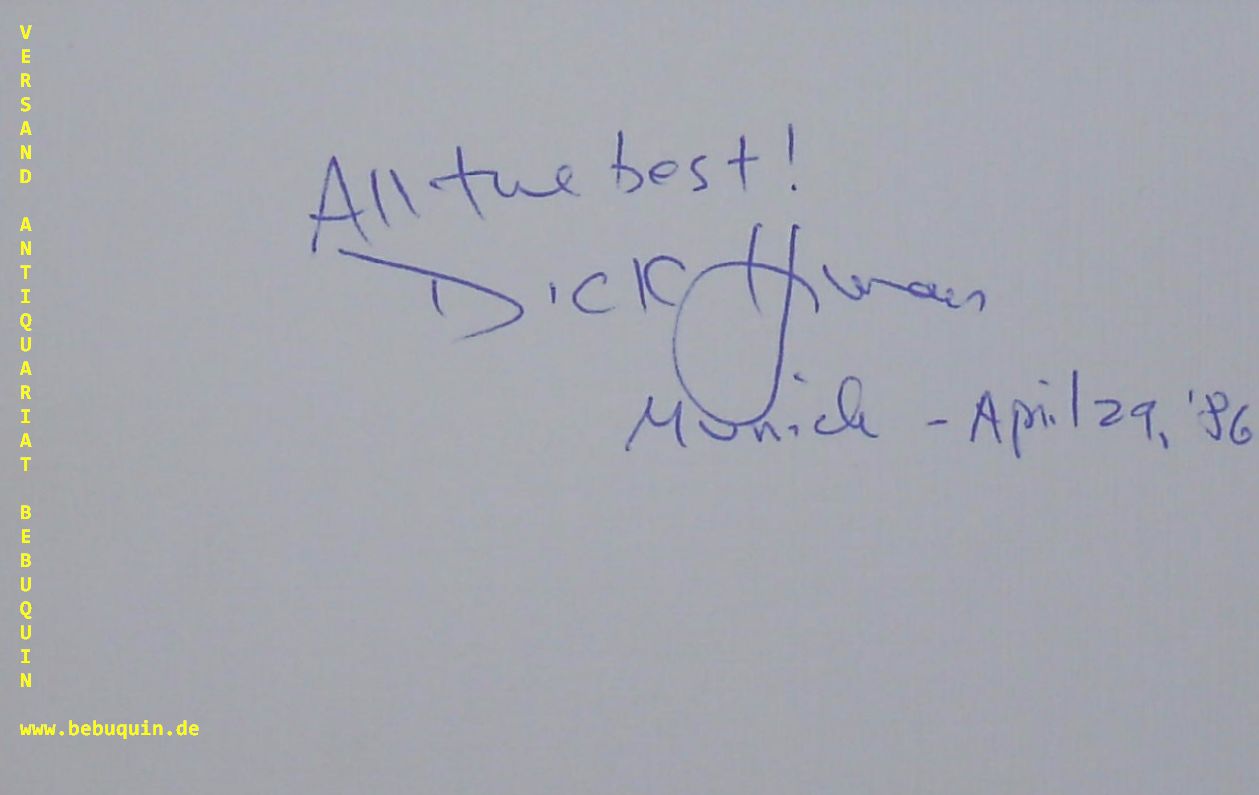 All the best!
Dick Hyman
Munich - April 29, '86
VERSAND ANTIQUARIAT BEBUQUIN
www.bebuquin.de